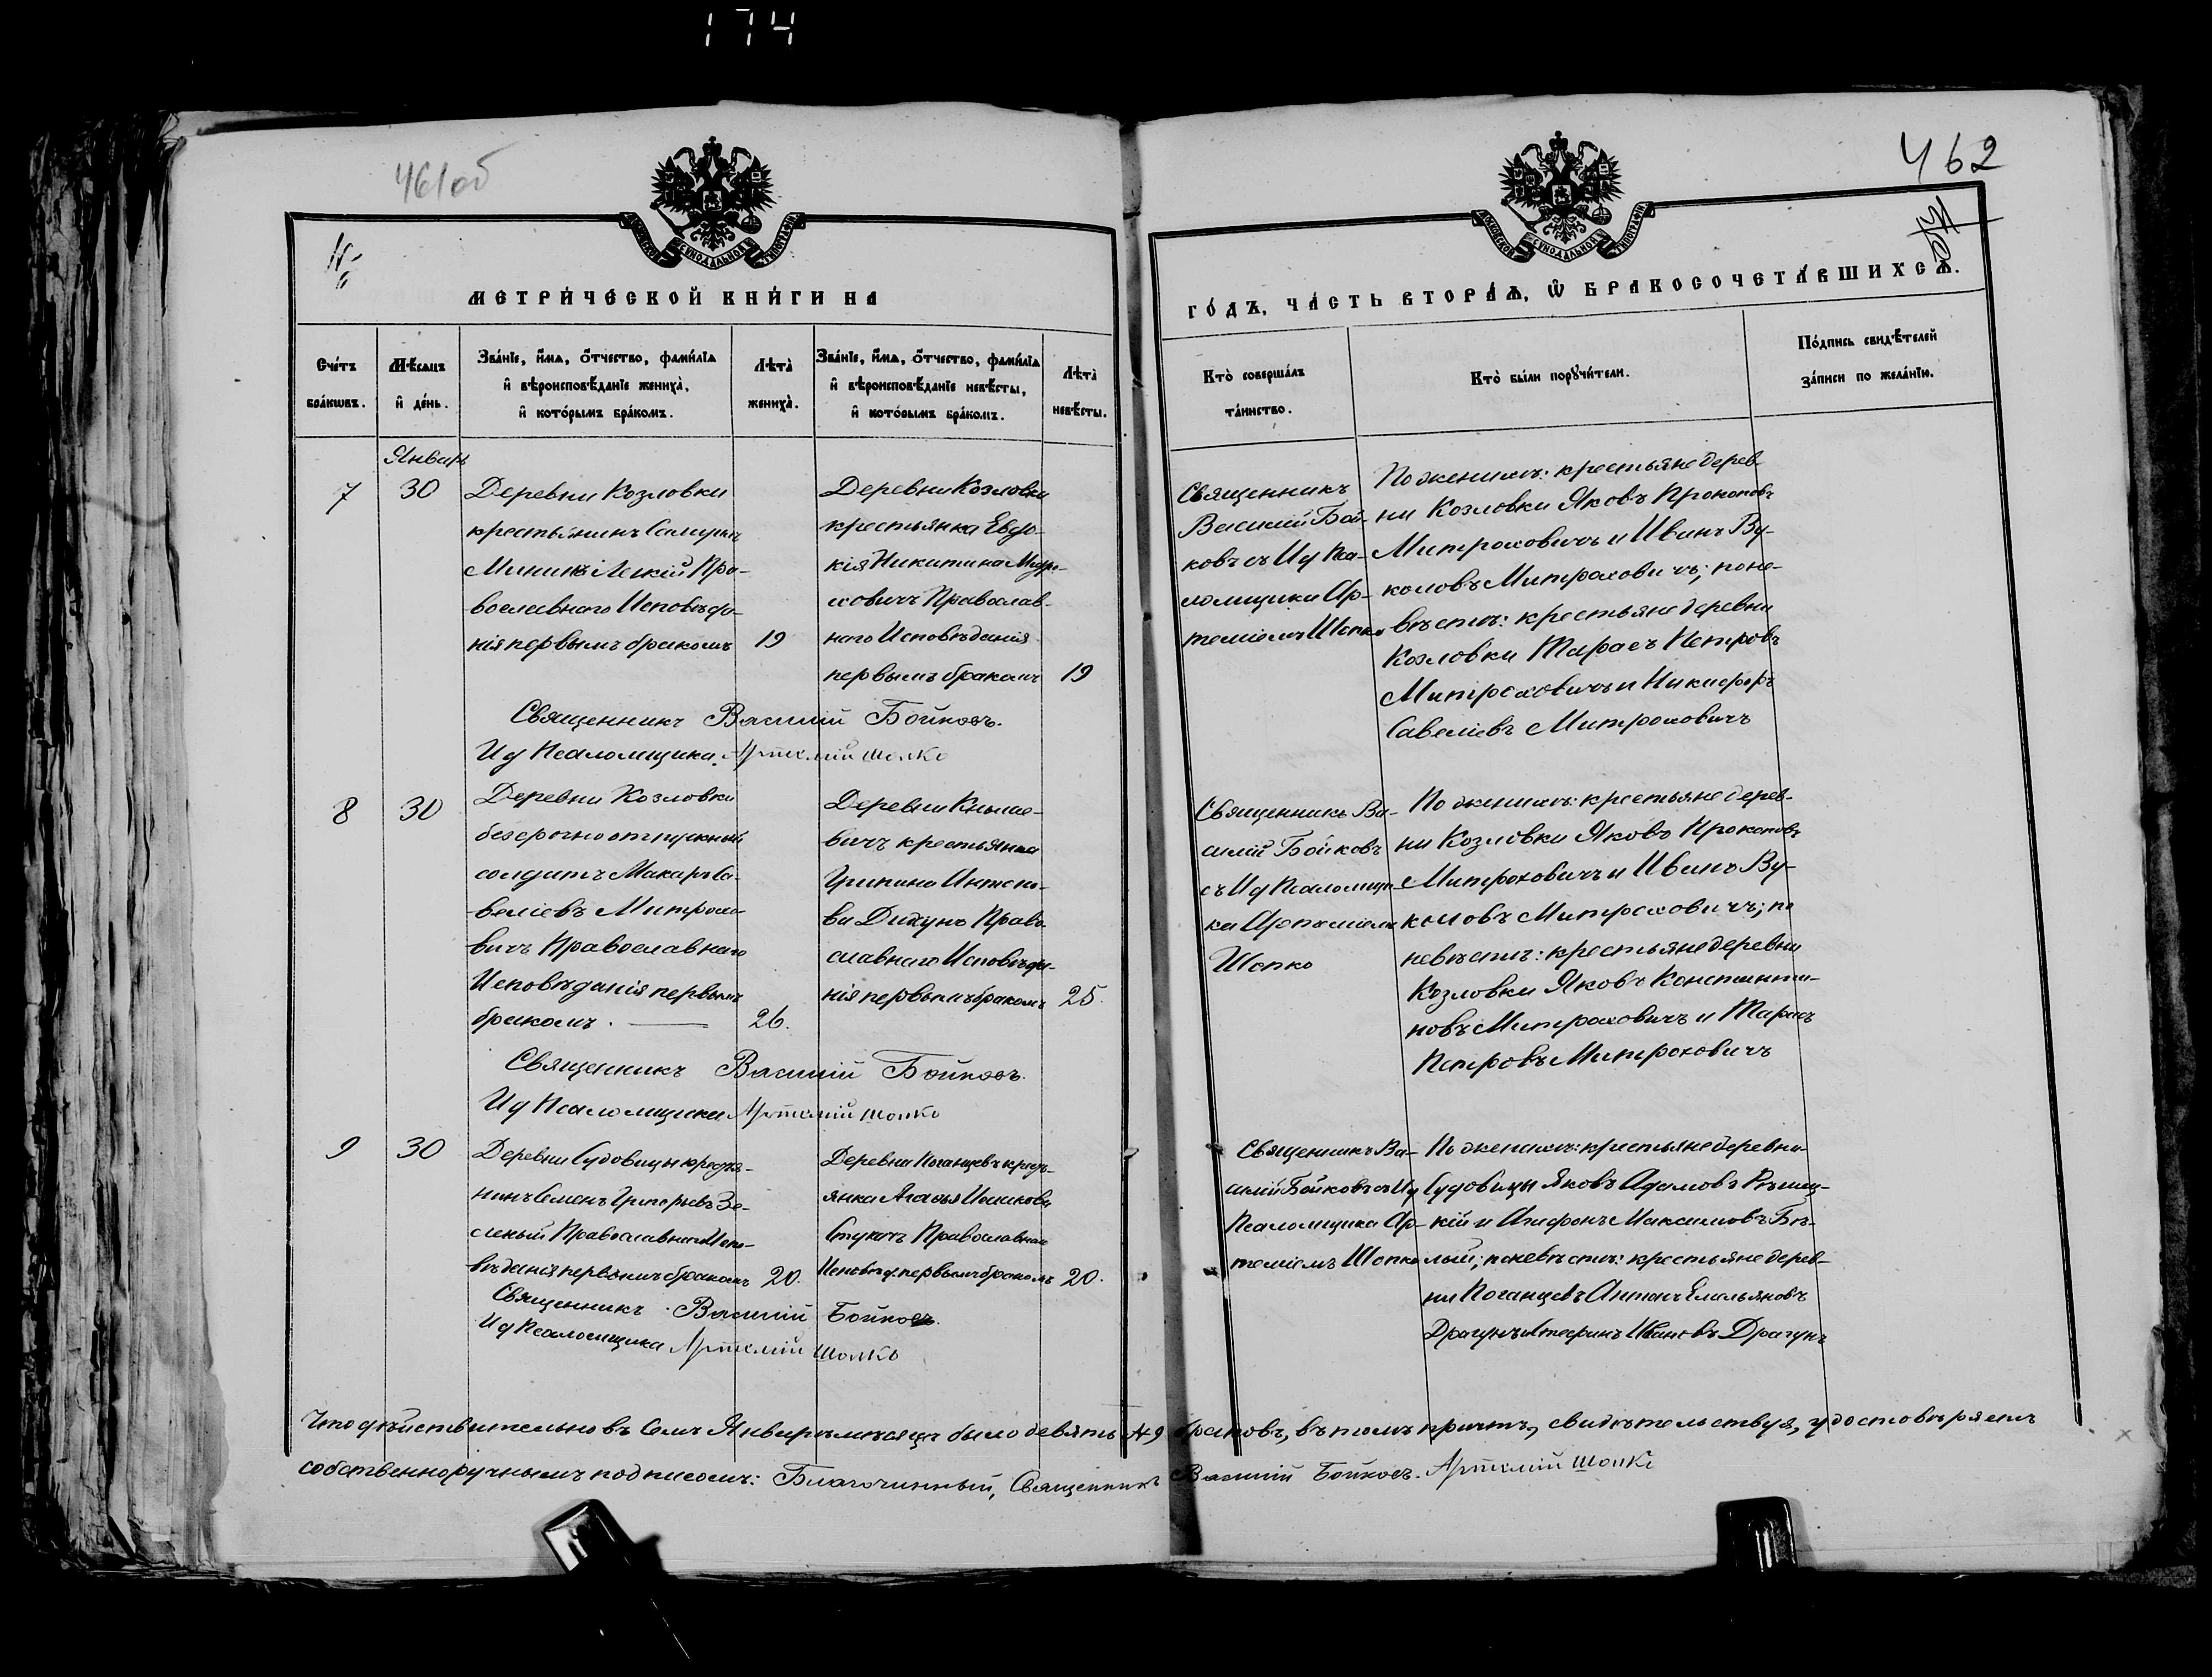 174
461об
462
МЕТРИ́ЧЕСКОЙ КНИ́ГИ НА
ГО́ДЪ, ЧА́СТЬ ВТОРА́Ѧ, Ѽ БРАКОСОЧЕТА́ВШИХСѦ.
Сче́тъ бра́кѡвъ.
Мѣ́сѧцъ и҆ де́нь.
Зва́нїе, и҆́мѧ, ѻ҆́тчество, фами́лїѧ
и҆ вѣроисповѣ́данїе жениха̀,
и҆ кото́рымъ бра́комъ.
Лѣта̀ жениха̀.
Зва́нїе, и҆́мѧ, ѻ҆́тчество, фами́лїѧ
и҆ вѣроисповѣ́данїе невѣ́сты,
и҆ кото́рымъ бра́комъ.
Лѣта̀ невѣ́сты.
Кто̀ соверша́лъ
та́инство.
Кто̀ бы́ли порꙋчи́тели.
По́дпись свидѣ́телей
за́писи по жела́нїю.
Январь
7
30
Деревни Козловки
крестьянинъ
Легкій Пра-
вославнаго Исповѣда-
нія первымъ бракомъ
19
Деревни Козловки
крестьянка Евдо-
кія Никитина Митро-
ховичъ Православ-
наго Исповѣданія
первымъ бракомъ
19
Священникъ
Василій Бой-
ковъ съ Ид Пса-
ломщика Ар-
теміемъ Шопко
По женихѣ: крестьяне дерев-
ни Козловки Яковъ Прокоповъ
Митроховичъ и Иванъ Ву-
коловъ Митроховичъ; по не-
вѣстѣ: крестьяне деревни
Козловки Тарасъ Петровъ
Митроховичъ и Никифоръ
Савеліевъ Митроховичъ
Священникъ Василій Бойковъ.
Ид Псаломщика Артемій Шопко
8
30
Деревни Козловки
безсрочно отпускный
солдатъ Макаръ Са-
веліевъ Митрохо-
вичъ Православнаго
Исповѣданія первымъ
бракомъ.
26.
вичъ крестьянка
Дидунъ Право-
славнаго Исповѣда-
нія первымъ бракомъ
25.
Священникъ Ва-
силій Бойковъ
съ Ид Псаломщи-
ка Артеміемъ
Шопко
По женихѣ: крестьяне дерев-
ни Козловки Яковъ Прокоповъ
Митроховичъ и Иванъ Ву-
коловъ Митроховичъ; по
невѣстѣ: крестьяне деревни
Козловки Яковъ Константи-
новъ Митроховичъ и Тарасъ
Петровъ Митроховичъ
Священникъ Василій Бойковъ.
Ид Псаломщика Артемій Шопко
9
30
Деревни Судовицы кресть-
янинъ Семенъ Григорьевъ Зе-
леный Православнаго Испо-
вѣданія первымъ бракомъ
20.
Деревни Поганцевъ кресть-
янка Агафья
Стукачъ Православнаго
Исповѣд. первымъ бракомъ
20.
Священникъ Ва-
силій Бойковъ съ Ид
Псаломщика Ар-
теміемъ Шопко
По женихѣ: крестьяне деревни
Судовицы Яковъ Адамовъ
и Агафонъ Максимовъ Бѣ-
лый; по невѣстѣ: крестьяне дерев-
ни Поганцевъ Антонъ Емельяновъ
Драгунъ и Стефанъ Ивановъ Драгунъ
Священникъ Василій Бойковъ.
Ид Псаломщика Артемій Шопко
Что дѣйствительно въ семъ Январѣ мѣсяцѣ было девять № 9 браковъ, въ томъ причтъ, свидѣтельствуя, удостовѣряетъ
собственноручнымъ подписомъ: Благочинный, Священникъ Василій Бойковъ. Артемій Шопко